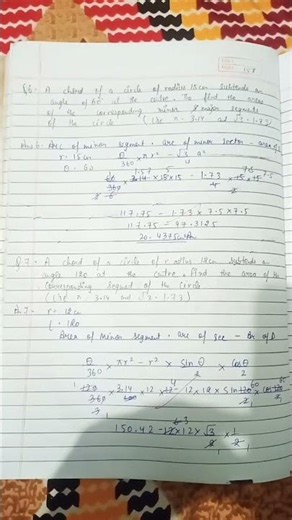 158
Q6. A chord of a circle of radius 15cm subtends an
angle of 60 at the centre. find the areas
of the corresponding minor & major segments
of the circle (Use π = 3.14 and √3 = 1.73)
Ans 6. Area of minor segment = are of minor sector - area of
r = 15cm θ/360 πr² - √3/4 a²
θ = 60
60/360 × 3.14 × 15 × 15 - 1.73/4 × 15 × 15
117.75 - 1.73 × 7.5 × 7.5
117.75 - 97.3125
20.4375cm²
Q.7. A chord of a circle of r radius 12cm subtends an
angle 120 at the centre. find the area of the
corresponding segment of the circle
(Use π = 3.14 and √3 = 1.73)
r = 12cm
120
Area of minor segment = are of sec - Ar of Δ
θ/360 × πr² - r² × sin θ/2 × cos θ/2
120/360 × 3.14 × 12 × 12 - 12 × 12 × sin 120/2 × cos 120/2
150.42 - 12 × 12 × √3/2 × 1/2